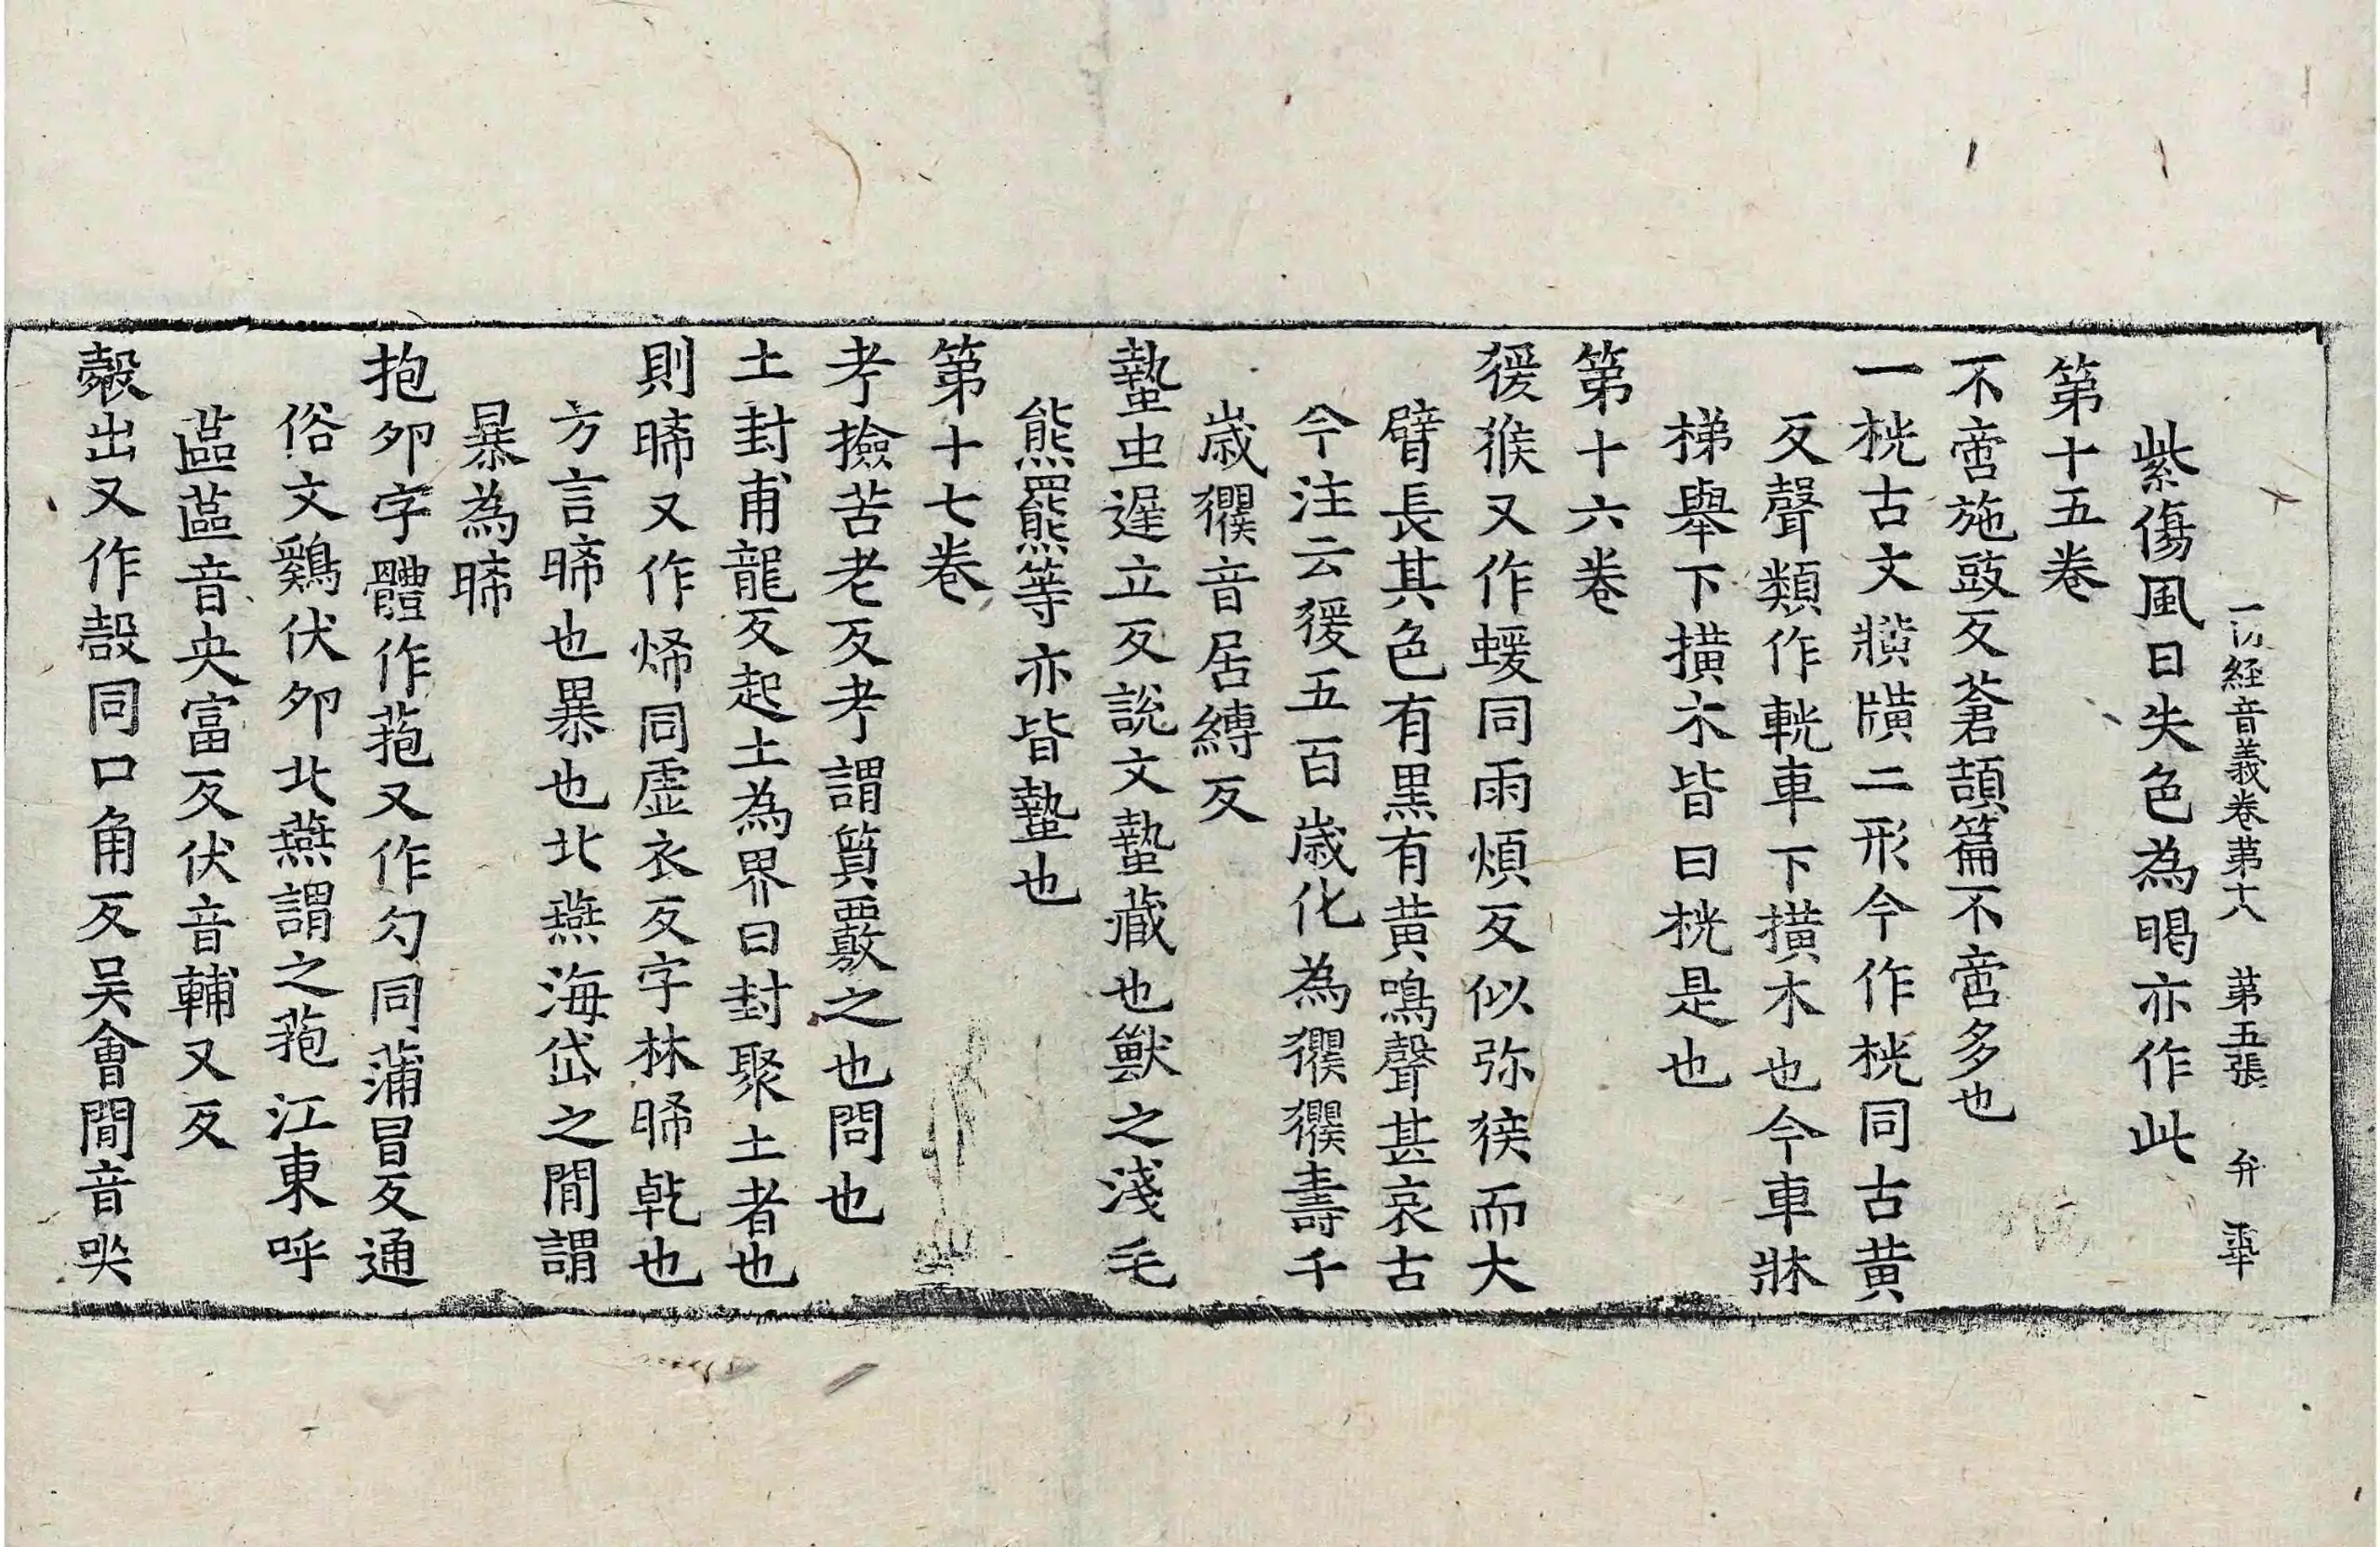 一切経音義卷苐十八 苐五張 弁 𠦑
紫傷風日失色為暍亦作此
苐十五卷
不啻施豉反蒼頡篇不啻多也
一桄古文㸉𤖖二形今作桄同古黄
反聲類作軦車下撗木也今車牀
梯舉下撗木皆曰桄是也
苐十六卷
猨猴又作蝯同雨煩反似弥猴而大
臂長其色有黒有黄鳴聲甚哀古
今注云猨五百歲化為玃玃壽千
歲玃音居縛反
蟄虫遲立反說文蟄藏也獸之淺毛
熊羆等亦皆蟄也
苐十七卷
考撿苦老反考謂質覈之也問也
土封甫龍反起土為界曰封封聚土者也
則晞又作烯同虛衣反字林晞乾也
方言晞也暴也北燕海岱之閒謂
暴為晞
抱卵字體作菢又作勽同蒲冒反通
俗文鷄伏卵北燕謂之菢江東呼
蓲蓲音央富反伏音輔又反
㲉出又作㱿同口角反吴會閒音哭